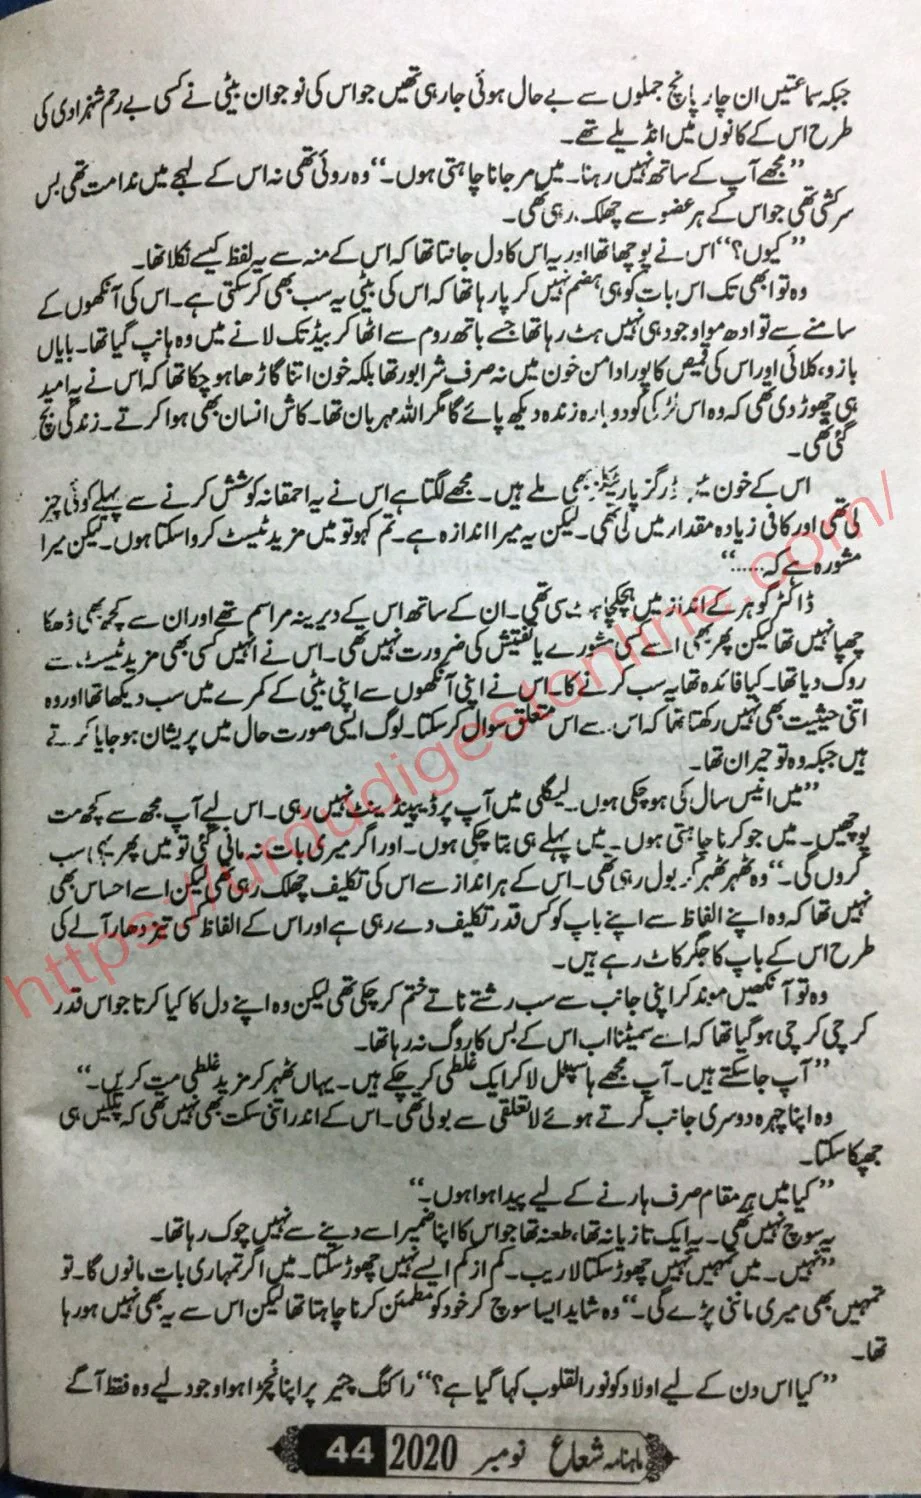 جبکہ سماعتیں ان چار پانچ جملوں سے بے حال ہوئی جا رہی تھیں جو اس کی نوجوان بیٹی نے کسی بے رحم شہزادی کی
طرح اس کے کانوں میں انڈیلے تھے۔
”مجھے آپ کے ساتھ نہیں رہنا۔ میں مر جانا چاہتی ہوں۔“ وہ روئی تھی نہ اس کے لہجے میں ندامت تھی بس
سرکشی تھی جو اس کے ہر عضو سے چھلک رہی تھی۔
”کیوں؟“ اس نے پوچھا تھا اور یہ اس کا دل جانتا تھا کہ اس کے منہ سے یہ لفظ کیسے نکلا تھا۔
وہ تو ابھی تک اس بات کو ہی ہضم نہیں کر پا رہا تھا کہ اس کی بیٹی یہ سب بھی کر سکتی ہے۔ اس کی آنکھوں کے
سامنے سے تو ادھ موا وجود ہی نہیں ہٹ رہا تھا جسے باتھ روم سے اٹھا کر بیڈ تک لانے میں وہ ہانپ گیا تھا۔ بایاں
بازو، کلائی اور اس کی قمیص کا پورا دامن خون میں نہ صرف شرابور تھا بلکہ خون اتنا گاڑھا ہو چکا تھا کہ اس نے یہ امید
ہی چھوڑ دی تھی کہ وہ اس لڑکی کو دوبارہ زندہ دیکھ پائے گا مگر اللہ مہربان تھا۔ کاش انسان بھی ہوا کرتے۔ زندگی بچ
گئی تھی۔
اس کے خون میں ڈرگز پارٹیکلز بھی ملے ہیں۔ مجھے لگتا ہے اس نے یہ احمقانہ کوشش کرنے سے پہلے کوئی چیز
لی تھی اور کافی زیادہ مقدار میں لی تھی۔ لیکن یہ میرا اندازہ ہے۔ تم کہو تو میں مزید ٹیسٹ کروا سکتا ہوں۔ لیکن میرا
مشورہ ہے کہ......“
ڈاکٹر گوہر کے انداز میں ہچکچاہٹ سی تھی۔ ان کے ساتھ اس کے دیرینہ مراسم تھے اور ان سے کچھ بھی ڈھکا
چھپا نہیں تھا لیکن پھر بھی اسے کسی مشورے یا تفتیش کی ضرورت نہیں تھی۔ اس نے انہیں کسی بھی مزید ٹیسٹ سے
روک دیا تھا۔ کیا فائدہ تھا یہ سب کرنے کا۔ اس نے اپنی آنکھوں سے اپنی بیٹی کے کمرے میں سب دیکھا تھا اور وہ
اتنی حیثیت بھی نہیں رکھتا تھا کہ اس سے اس متعلق سوال کر سکتا۔ لوگ ایسی صورت حال میں پریشان ہو جایا کرتے
ہیں جبکہ وہ تو حیران تھا۔
”میں انیس سال کی ہو چکی ہوں۔ لیگلی میں آپ پر ڈیپینڈینٹ نہیں رہی۔ اس لیے آپ مجھ سے کچھ مت
پوچھیں۔ میں جو کرنا چاہتی ہوں۔ میں پہلے ہی بتا چکی ہوں۔ اور اگر میری بات نہ مانی گئی تو میں پھر یہی سب
کروں گی۔“ وہ ٹھہر ٹھہر کر بول رہی تھی۔ اس کے ہر انداز سے اس کی تکلیف چھلک رہی تھی لیکن اسے احساس بھی
نہیں تھا کہ وہ اپنے الفاظ سے اپنے باپ کو کس قدر تکلیف دے رہی ہے اور اس کے الفاظ کسی تیز دھار آلے کی
طرح اس کے باپ کا جگر کاٹ رہے ہیں۔
وہ تو آنکھیں موند کر اپنی جانب سے سب رشتے ناتے ختم کر چکی تھی لیکن وہ اپنے دل کا کیا کرتا جو اس قدر
کرچی کرچی ہو گیا تھا کہ اسے سمیٹنا اب اس کے بس کا روگ نہ رہا تھا۔
”آپ جا سکتے ہیں۔ آپ مجھے ہاسپٹل لا کر ایک غلطی کر چکے ہیں۔ یہاں ٹھہر کر مزید غلطی مت کریں۔“
وہ اپنا چہرہ دوسری جانب کرتے ہوئے لا تعلقی سے بولی تھی۔ اس کے اندر اتنی سکت بھی نہیں تھی کہ پلکیں ہی
جھپکا سکتا۔
”کیا میں ہر مقام صرف ہارنے کے لیے پیدا ہوا ہوں۔“
یہ سوچ نہیں تھی۔ یہ ایک تازیانہ تھا، طعنہ تھا جو اس کا اپنا ضمیر اسے دینے سے نہیں چوک رہا تھا۔
”نہیں۔ میں تمہیں نہیں چھوڑ سکتا لاریب۔ کم از کم ایسے نہیں چھوڑ سکتا۔ میں اگر تمہاری بات مانوں گا۔ تو
تمہیں بھی میری ماننی پڑے گی۔“ وہ شاید ایسا سوچ کر خود کو مطمئن کرنا چاہتا تھا لیکن اس سے یہ بھی نہیں ہو رہا
تھا۔
”کیا اس دن کے لیے اولاد کو نور القلوب کہا گیا ہے؟“ راکنگ چیئر پر اپنا نچڑا ہوا وجود لیے وہ فقط آگے
ماہنامہ شعاع نومبر 2020 44
https://urdudigestonline.com/